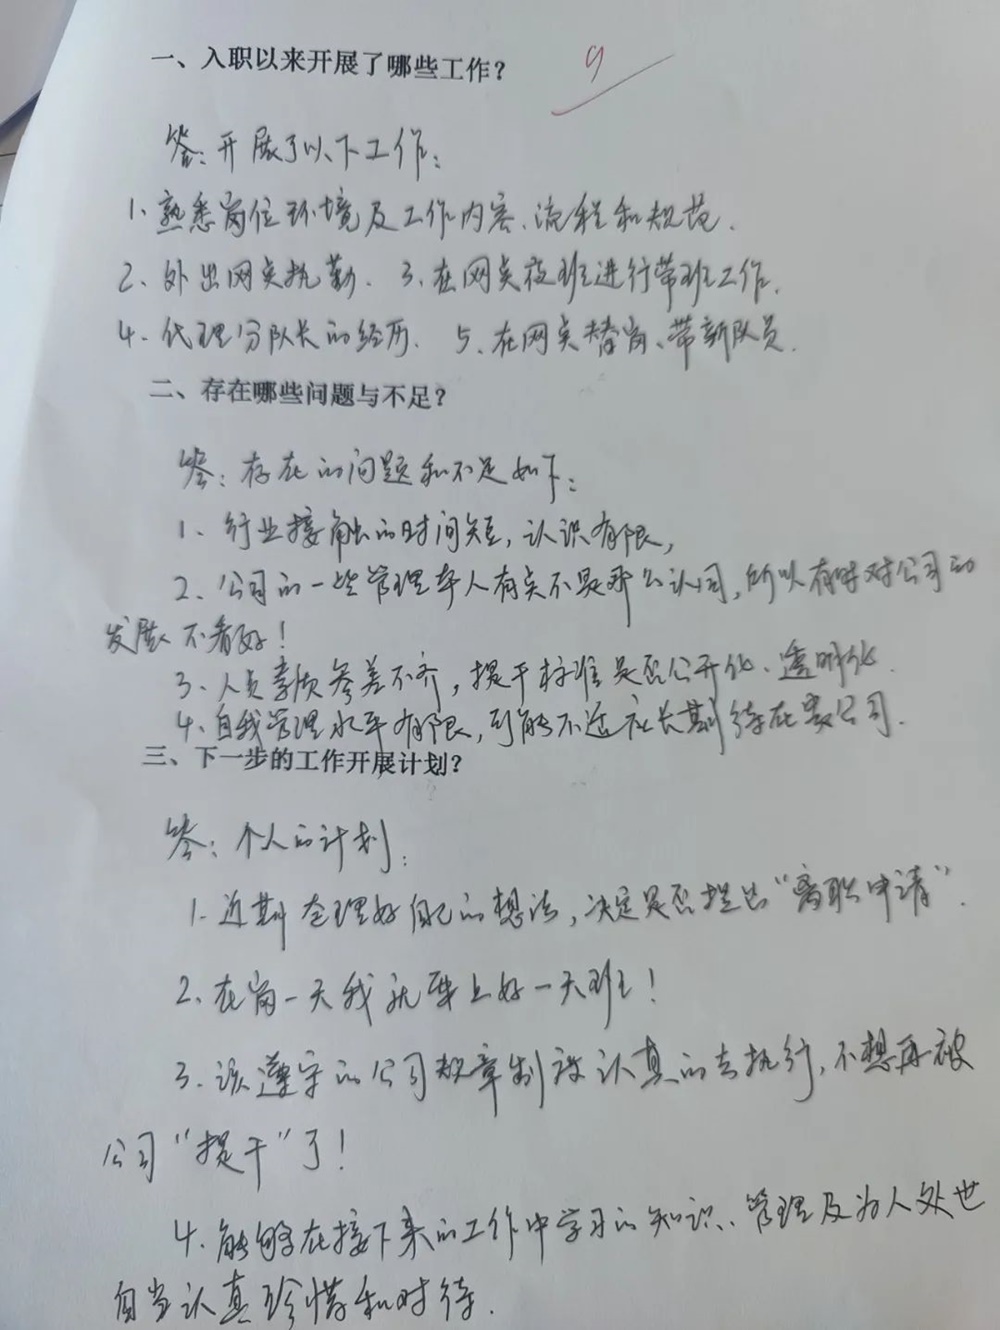 一、入职以来开展了哪些工作？
9
答：开展了以下工作：
1、熟悉岗位环境及工作内容、流程和规范.
2、外出网点执勤. 3、在网点夜班进行带班工作.
4、代理分队长的经历. 5、在网点替岗、带新队员.
二、存在哪些问题与不足？
答：存在的问题和不足如下：
1、行业接触的时间短，认识有限，
2、公司的一些管理本人有点不是那么认同，所以有时对公司的
发展不看好！
3、人员素质参差不齐，提干标准是否公开化、透明化.
4、自我管理水平有限，可能不适应长期待在贵公司.
三、下一步的工作开展计划？
答：个人的计划：
1、近期在理好自己的想法，决定是否提出“离职申请”.
2、在岗一天我就要上好一天班！
3、该遵守的公司规章制度认真的去执行，不想再被
公司“提干”了！
4、能够在接下来的工作中学习的知识、管理及为人处世
自当认真珍惜和对待.